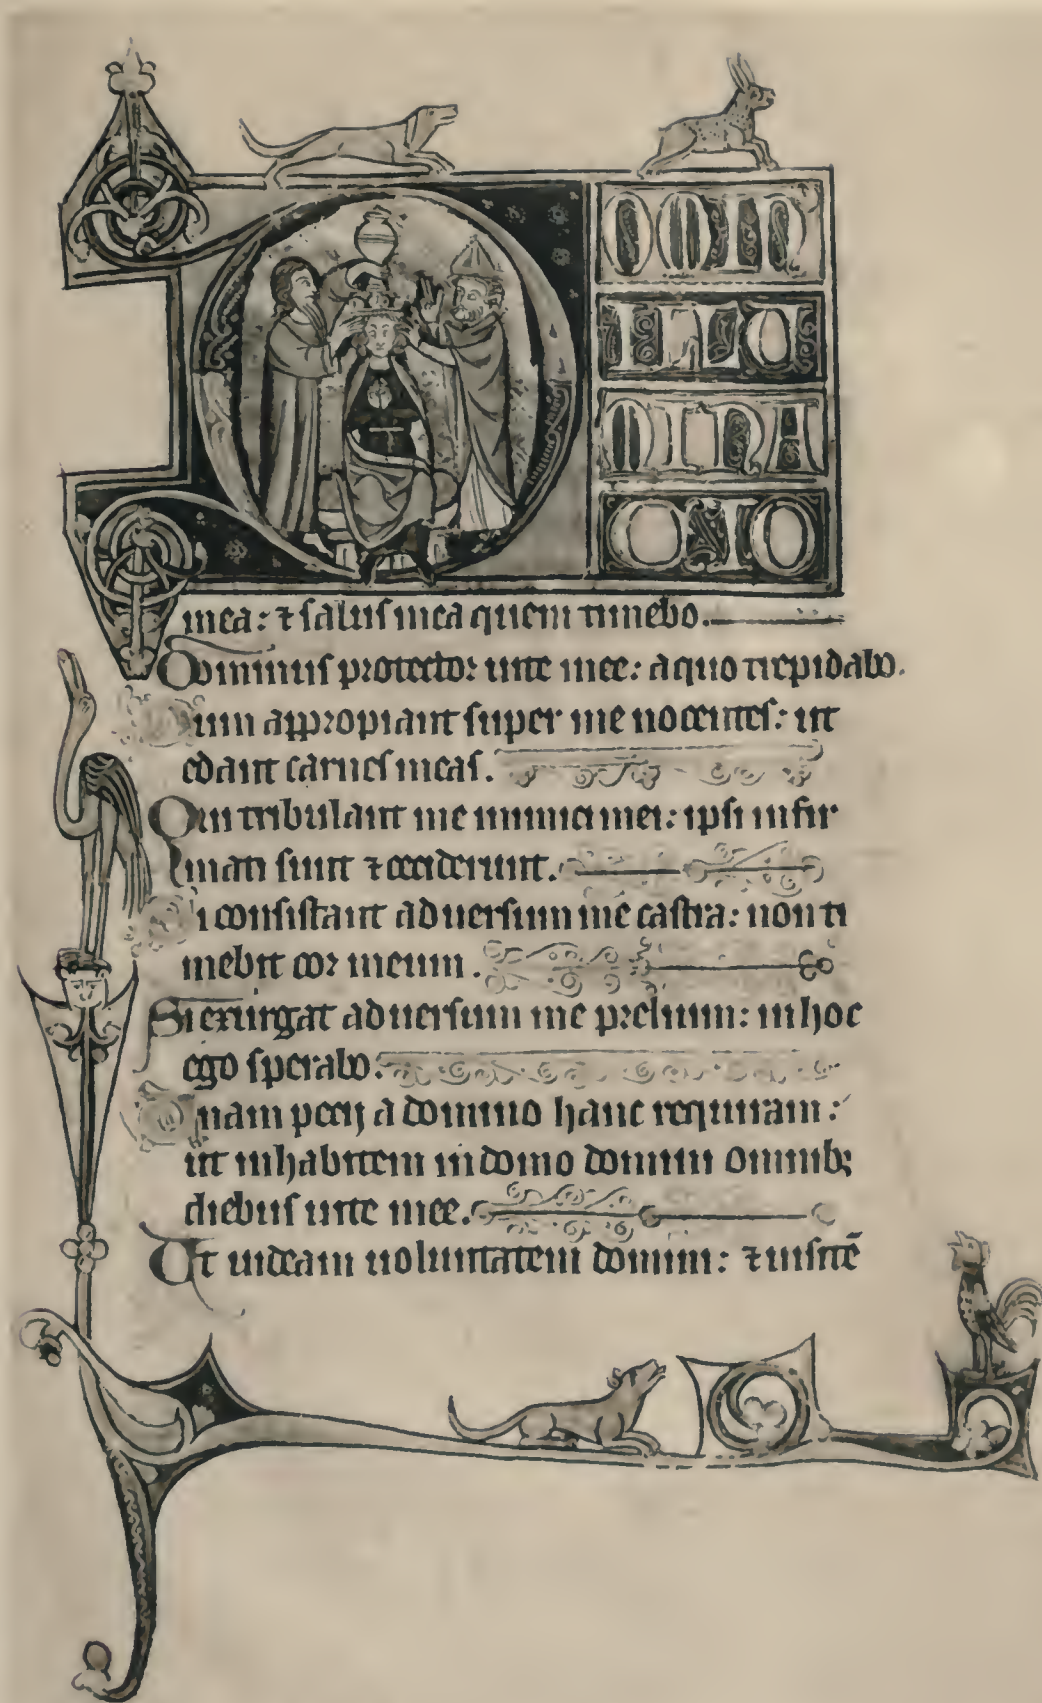 DOMIN’
ILLU
MINA
CIO
mea: ⁊ ſaluſ mea quem timebo.
Dominuſ protector uite mee: a quo trepidabo.
Dum appropiant ſuper me nocenteſ: ut
edant carneſ meaſ.
Qui tribulant me inimici mei: ipſi infir
mati ſunt ⁊ ceciderunt.
Si conſiſtant aduerſum me caſtra: non ti
mebit cor meum.
Si exurgat aduerſum me prelium: in hoc
ego ſperabo.
Unam pecij a domino hanc requiram:
ut inhabitem in domo domini omnib;
diebuſ uite mee.
Ut uideam uoluntatem domini: ⁊ uiſitē